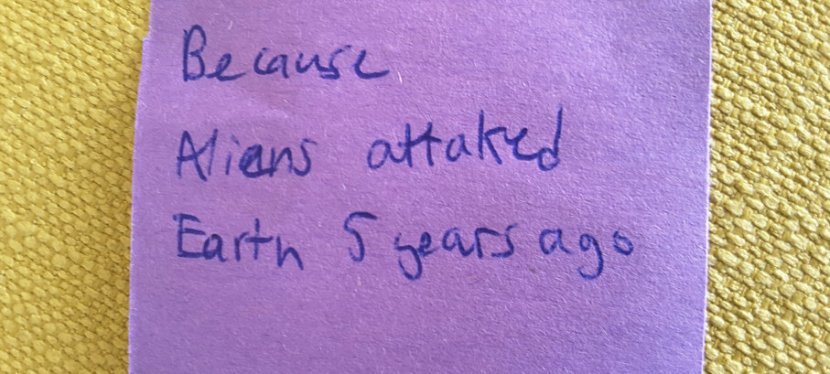 Because
Aliens attaked
Earth 5 years ago